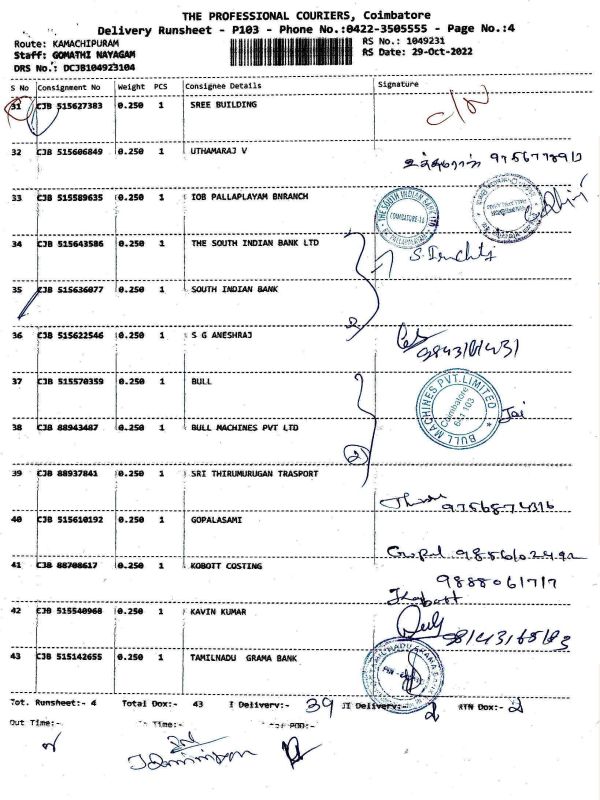 THE PROFESSIONAL COURIERS, Coimbatore
Delivery Runsheet - P103 - Phone No.:0422-3505555 - Page No.:4
Route: KAMACHIPURAM
RS No.: 1049231
Staff: GOMATHI NAYAGAM
RS Date: 29-Oct-2022
DRS No.: DCJB104923104
S No Consignment No Weight PCS Consignee Details Signature
31 CJB 515627383 0.250 1 SREE BUILDING
32 CJB 515606849 0.250 1 UTHAMARAJ V
33 CJB 515589635 0.250 1 IOB PALLAPLAYAM BNRANCH
THE SOUTH INDIAN BANK LTD
COIMBATORE-14
34 CJB 515643586 0.250 1 THE SOUTH INDIAN BANK LTD
35 CJB 515636077 0.250 1 SOUTH INDIAN BANK
2
36 CJB 515622546 0.250 1 S G ANESHRAJ
37 CJB 515570359 0.250 1 BULL
BULL MACHINES PVT.LIMITED
Coimbatore
641 103
Jai
38 CJB 88943487 0.250 1 BULL MACHINES PVT LTD
2
39 CJB 88937841 0.250 1 SRI THIRUMURUGAN TRASPORT
40 CJB 515610192 0.250 1 GOPALASAMI
Gopal
41 CJB 88708617 0.250 1 KOBOTT COSTING
9888061717
42 CJB 515540968 0.250 1 KAVIN KUMAR
43 CJB 515142655 0.250 1 TAMILNADU GRAMA BANK
Tot. Runsheet:- 4 Total Dox:- 43 I Delivery:- 39 II Delivery:- 2 RTN Dox:- 2
Out Time:- In Time:-